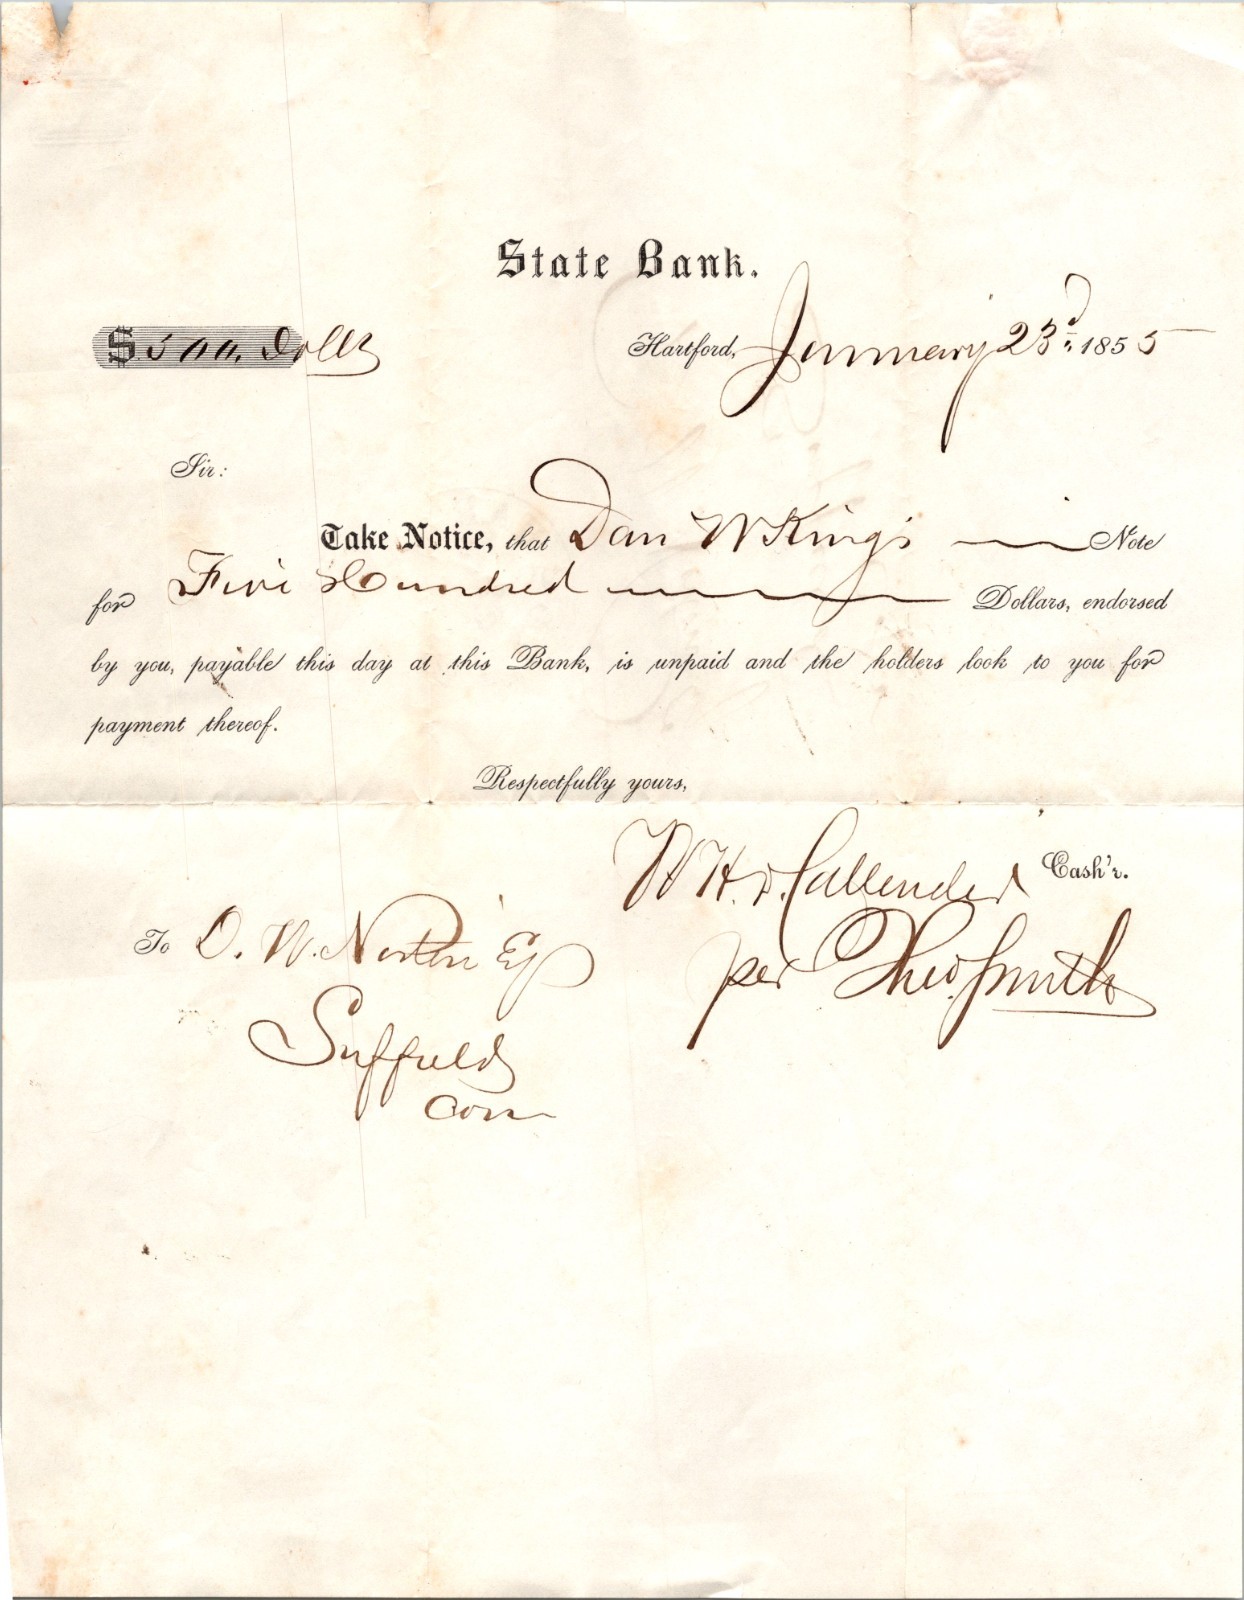 State Bank.
$500. Dolls
Hartford, January 23d, 1855
Sir:
Take Notice, that Dan W Kings Note
for Five Hundred Dollars, endorsed
by you, payable this day at this Bank, is unpaid and the holders look to you for
payment thereof.
Respectfully yours,
W H. D. Callender Cash'r.
per Theo. Smith
To D. W. Norton Esq
Suffield
Conn